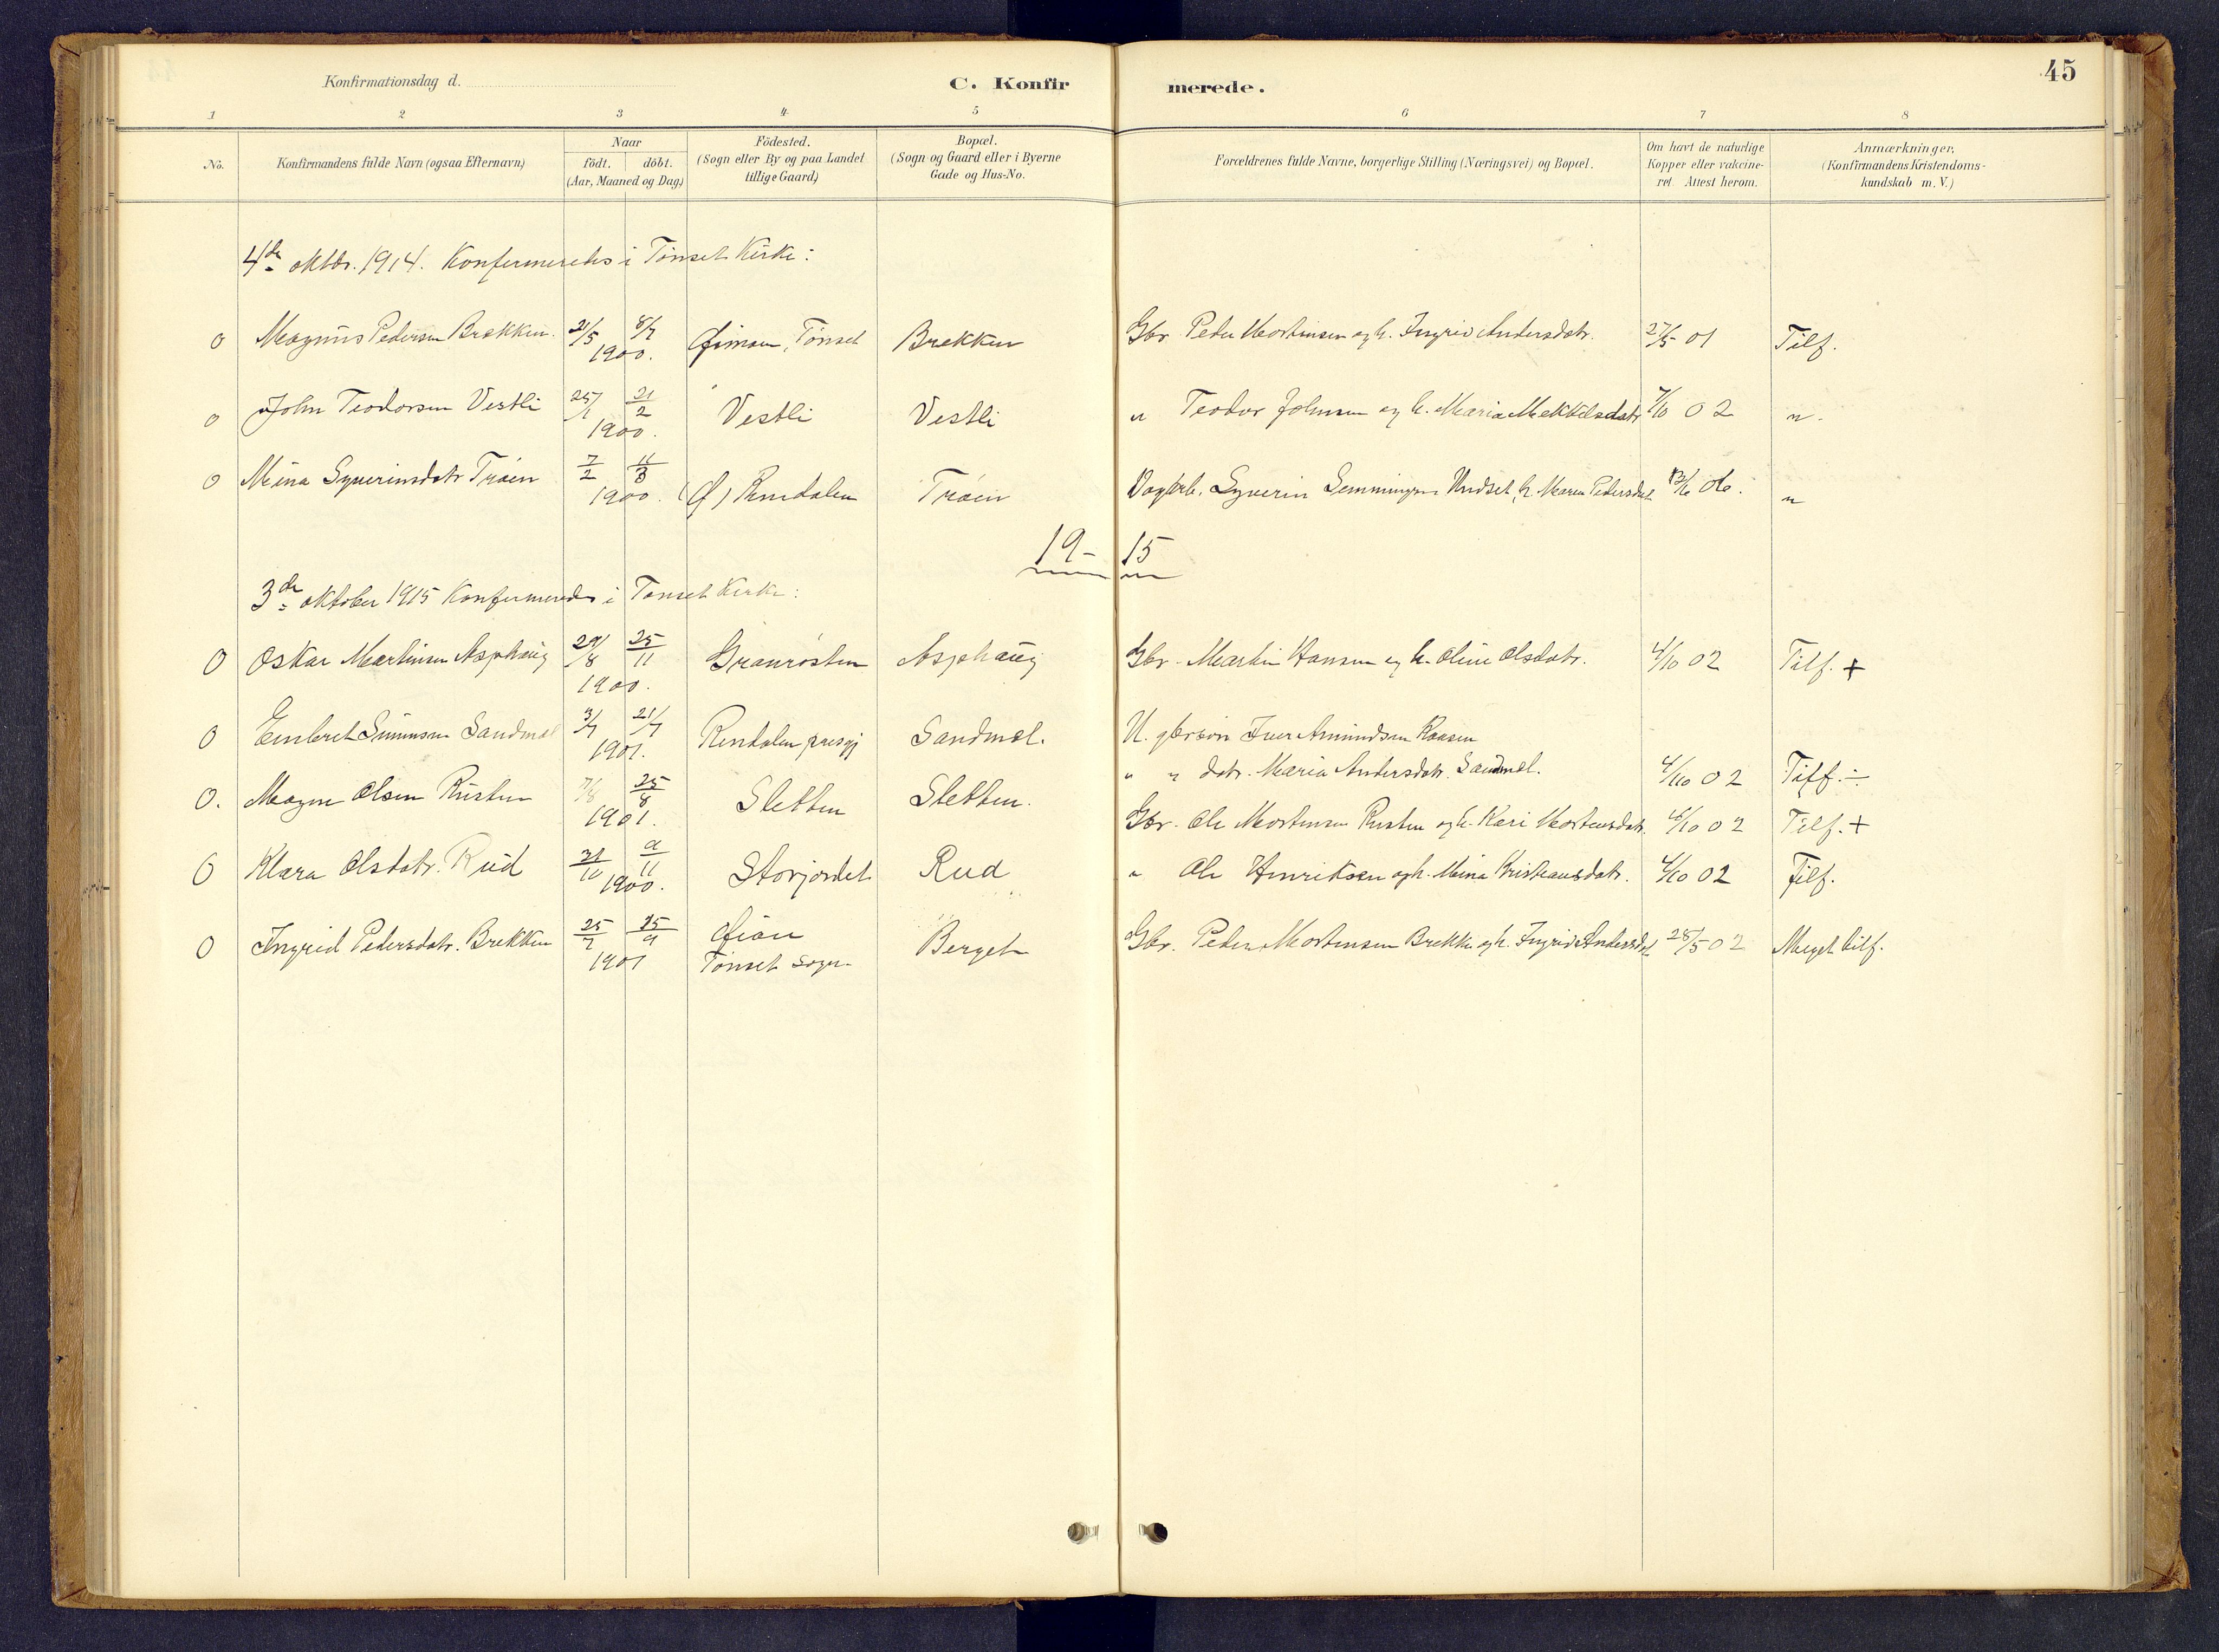 45
Konfirmationsdag d.
C. Konfir merede.
1 2 3 4 5 6 7 8
No. Konfirmandens fulde Navn (ogsaa Efternavn) Naar födt. döbt. (Aar, Maaned og Dag) Födested. (Sogn eller By og paa Landet tillige Gaard) Bopæl. (Sogn og Gaard eller i Byerne Gade og Hus-No. Forældrenes fulde Navne, borgerlige Stilling (Næringsvei) og Bopæl. Om havt de naturlige Kopper eller vakcineret. Attest herom. Anmærkninger. (Konfirmandens Kristendomskundskab m. V.)
4de oktbr. 1914. Konfirmeredes i Tönset Kirke:
0 Magnus Pedersen Brækken. 21/5 8/7 1900. Tönset Brekken Gbr. Peder Mortensen og h. Ingrid Andersdatr. 27/5 01 Tilf.
0 John Teodorsen Vestli 25/1 21/2 1900. Vestli Vestli " Teodor Johnsen og h. Maria 7/10 02 "
0 Mina Syverinsdatr Tröen 7/2 11/3 1900. Rendalen Tröen Dagarb. Syverin Semmingsen Undset, h. Maren Pedersdat "
19-15
3de oktober 1915 Konfirmeredes i Tönset Kirke:
0 Oskar Martinsen Asphaug 29/8 25/11 1900. Granrosten Asphaug Gbr. Martin Hansen og h. Oline Olsdatr. 4/10 02 Tilf. +
0 Embret Simensen Sandmæl 3/7 21/7 1901. Rendalen præsgj Sandmæl. U. gbrsön Iver Amundsen
" " datr. Maria Andersdatr. Sandmæl. 4/10 02 Tilf. ÷
0. Magne Olsen Rusten 7/8 25/8 1901. Sletten Sletten. Gbr. Ole Mortensen Rusten og h. Kari Mortensdatr. 6/10 02 Tilf. +
0 Klara Olsdatr. Rud 21/10 9/11 1900. Storjordet Rud " Ole Henriksen og h. Mina Kristiansdatr. 4/10 02 Tilf.
0 Ingrid Pedersdatr. Brekken 25/7 15/9 1901 Tönset sogn Berget Gbr. Peder Mortensen Brekke og h. Ingrid Andersdat 28/5 02 Meget tilf.